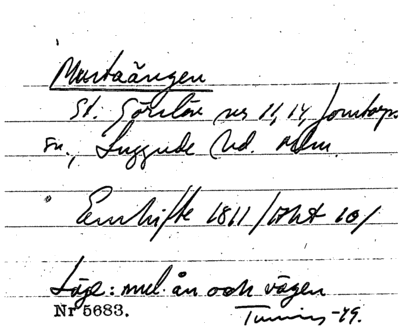 Mastaängen
St. Görslöv nr 11, 14, Jonstorps
sn., Luggude hd. Mlm.
Enskifte 1811 /Akt 10/
Läge: mel. ån och vägen
Nr 5683. -49.